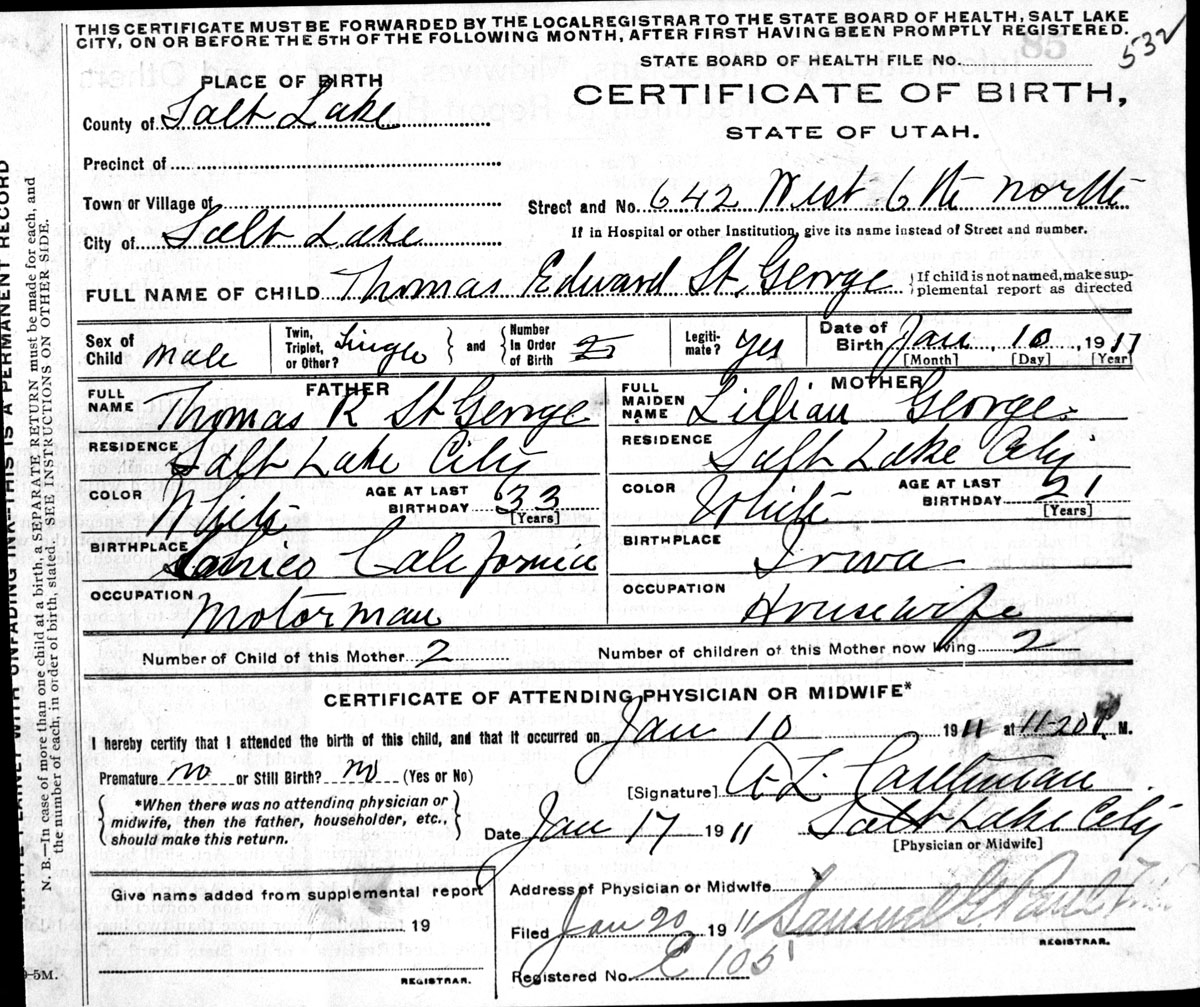 THIS CERTIFICATE MUST BE FORWARDED BY THE LOCAL REGISTRAR TO THE STATE BOARD OF HEALTH, SALT LAKE
CITY, ON OR BEFORE THE 5TH OF THE FOLLOWING MONTH, AFTER FIRST HAVING BEEN PROMPTLY REGISTERED.
532
STATE BOARD OF HEALTH FILE No.
85
PLACE OF BIRTH
CERTIFICATE OF BIRTH,
STATE OF UTAH.
County of Salt Lake
Precinct of
Town or Village of
Street and No. 642 West 6th North
City of Salt Lake
If in Hospital or other Institution, give its name instead of Street and number.
FULL NAME OF CHILD Thomas Edward St. George
{If child is not named, make sup-
plemental report as directed
Sex of Child Male
Twin, Triplet, or Other? Single } and { Number In Order of Birth 2
Legiti-mate? Yes
Date of Birth Jan 10 1911
[Month] [Day] [Year]
FATHER
FULL NAME Thomas R St George
RESIDENCE Salt Lake City
COLOR White AGE AT LAST BIRTHDAY 33 [Years]
BIRTHPLACE California
OCCUPATION Motorman
MOTHER
FULL MAIDEN NAME Lillian George
RESIDENCE Salt Lake City
COLOR White AGE AT LAST BIRTHDAY 21 [Years]
BIRTHPLACE Iowa
OCCUPATION Housewife
Number of Child of this Mother 2 Number of children of this Mother now living 2
CERTIFICATE OF ATTENDING PHYSICIAN OR MIDWIFE*
I hereby certify that I attended the birth of this child, and that it occurred on Jan 10 1911 at 11-20 P M.
Premature no or Still Birth? no (Yes or No)
{*When there was no attending physician or
midwife, then the father, householder, etc.,
should make this return.}
[Signature] A L
Date Jan 17 1911 Salt Lake City
[Physician or Midwife]
Give name added from supplemental report
19
REGISTRAR.
Address of Physician or Midwife
Filed Jan 20 1911 Samuel G Paul
REGISTRAR.
Registered No. C 105
WITH UNFADING INK—THIS IS A PERMANENT RECORD
N. B.—In case of more than one child at a birth, a SEPARATE RETURN must be made for each, and
the number of each, in order of birth, stated. SEE INSTRUCTIONS ON OTHER SIDE.
-5M.